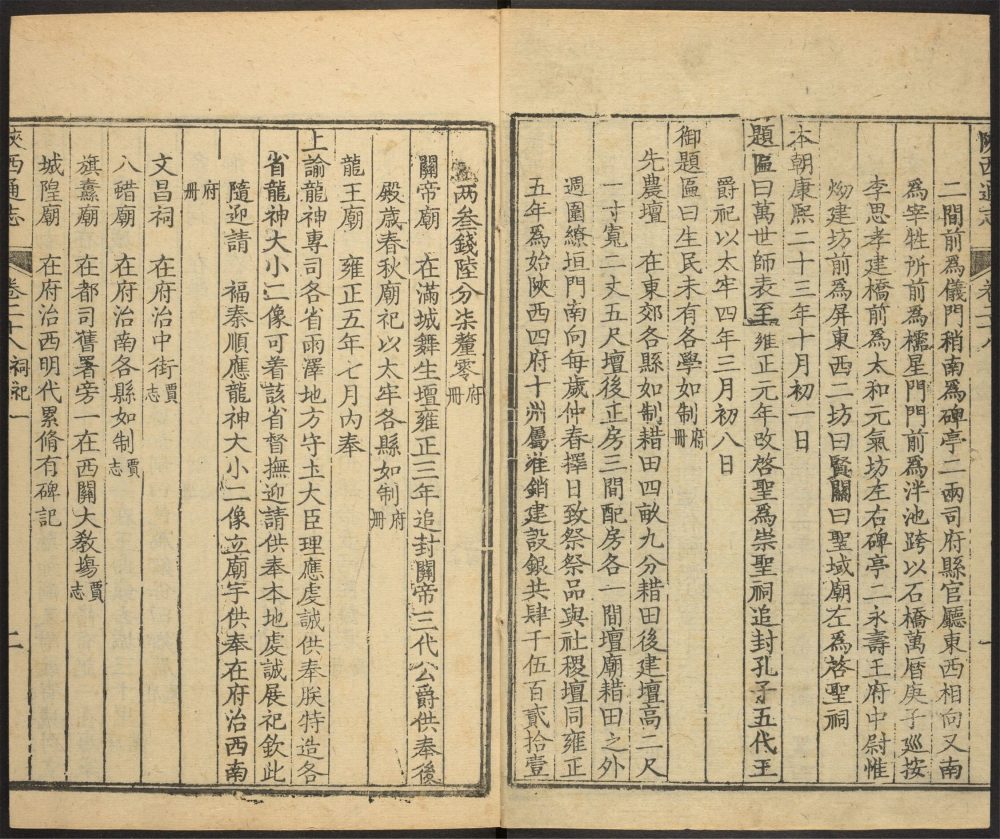 陝西通志 卷二十八 一
二間前爲儀門稍南爲碑亭二兩司府縣官廳東西相向又南
爲宰牲所前爲櫺星門門前爲泮池跨以石橋萬曆庚子巡按
李思孝建橋前爲太和元氣坊左右碑亭二永壽王府中尉惟
㶇建坊前爲屏東西二坊曰賢關曰聖域廟左爲啓聖祠
本朝康熙二十三年十月初一日
題匾曰萬世師表至雍正元年改啓聖爲崇聖祠追封孔子五代王
爵祀以太牢四年三月初八日
御題匾曰生民未有各學如制府冊
先農壇 在東郊各縣如制耤田四畝九分耤田後建壇高二尺
一寸寬二丈五尺壇後正房三間配房各一間壇廟耤田之外
週圍繚垣門南向每歲仲春擇日致祭祭品與社稷壇同雍正
五年爲始陝西四府十州屬准銷建設銀共肆千伍百貳拾壹
兩叁錢陸分柒釐零府冊
關帝廟 在滿城舞生壇雍正三年追封關帝三代公爵供奉後
殿歲春秋廟祀以太牢各縣如制府冊
龍王廟 雍正五年七月內奉
上諭龍神專司各省雨澤地方守土大臣理應虔誠供奉朕特造各
省龍神大小二像可着該省督撫迎請供奉本地虔誠展祀欽此
隨迎請 福秦順應龍神大小二像立廟宇供奉在府治西南
府冊
文昌祠 在府治中街賈志
八醋廟 在府治南各縣如制賈志
旗纛廟 在都司舊署旁一在西關大敎場賈志
城隍廟 在府治西明代累脩有碑記
陝西通志 卷二十八 祠祀一 二